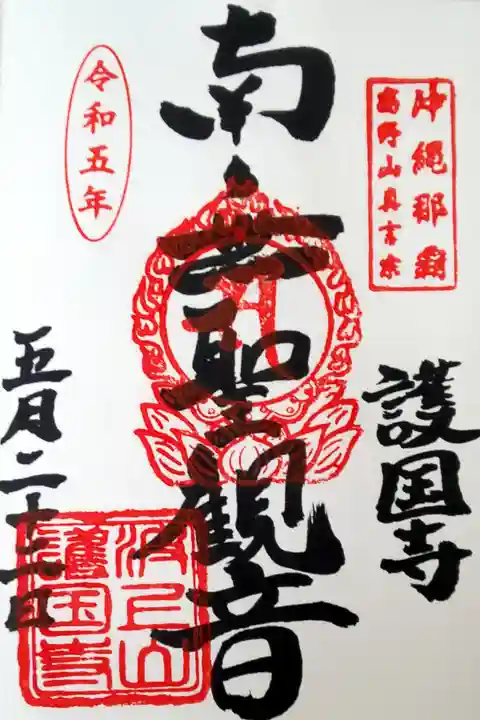 沖縄那覇
高野山真言宗
護国寺
南無聖観音
令和五年
五月二十二日
波上山
護国寺